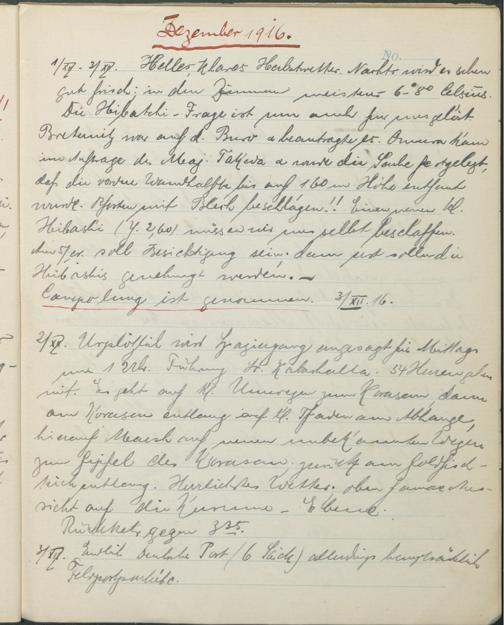 Dezember 1916.
No.
1/XII. 2/XII. Helles, klares Herbstwetter. Nachts wird es schon
gut frisch; in den Zimmern meistens 6°-8° Celsius.
Die Hibatchi-Frage ist nun auch für uns gelöst
war auf d. Büro u beantragte es. Omura kam
im Auftrage des Maj. u wurde die Sache so gelegt,
daß die vordere Wandhälfte bis auf 160 m Höhe entfernt
wurde. Pfosten mit Blech beschlagen!! Einen neuen kl.
Hibashi (Y. 2,60) müssen wir uns selbst beschaffen.
Am 5/er. soll Besichtigung sein. dann erst sollen die
Hibashis genehmigt werden. —
Campolung ist genommen. 3/XII. 16.
2/XII. Urplötzlich wird Spaziergang angesagt für Mittags
um 1 Uhr. Führung 54 Herren gehen
mit. Es geht auf kl. Umwegen zum Korasan, dann
am Korasan entlang auf kl. Pfaden am Abhange,
hierauf Marsch auf neuen unbekannten Wegen
zum Gipfel des Korasan. zurück am Goldfisch-
teich entlang. Herrlichstes Wetter. oben
sicht auf die Kurume - Ebene.
Rückkehr gegen 3 35.
3/XII. Endlich deutsche Post (6 Stück) allerdings hauptsächlich